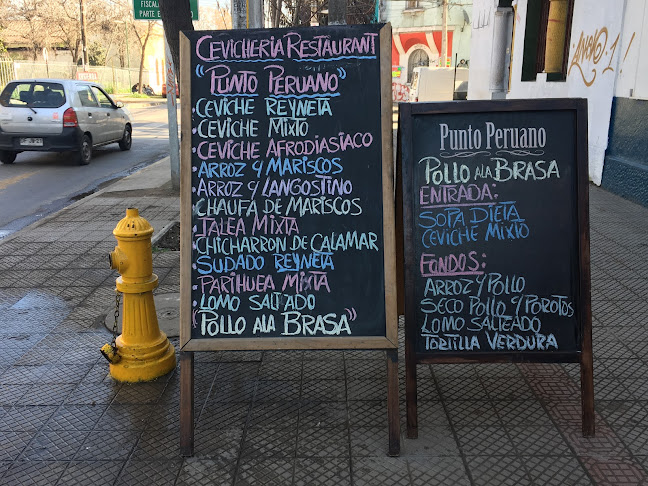 FISCAL
PARTE E
CEVICHERIA RESTAURANT
"PUNTO PERUANO"
• CEVICHE REYNETA
• CEVICHE MIXTO
• CEVICHE AFRODIASIACO
• ARROZ Y MARISCOS
• ARROZ Y LANGOSTINO
• CHAUFA DE MARISCOS
• JALEA MIXTA
• CHICHARRON DE CALAMAR
• SUDADO REYNETA
• PARIHUEA MIXTA
• LOMO SALTADO
"POLLO ALA BRASA"
Punto Peruano
POLLO ALA BRASA
ENTRADA:
SOPA DIETA
CEVICHE MIXTO
FONDOS:
ARROZ Y POLLO
SECO POLLO Y POROTOS
LOMO SALTEADO
TORTILLA VERDURA